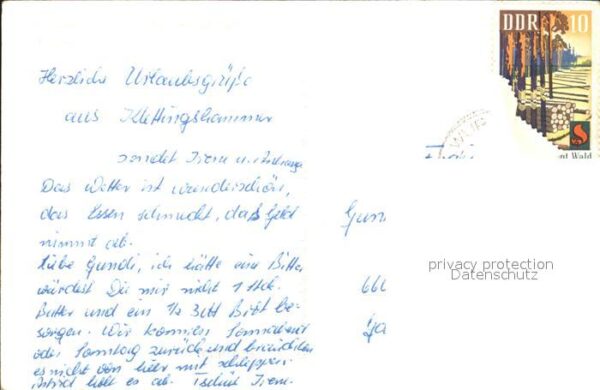 DDR 10
Herzliche Urlaubsgrüße
aus Klettigshammer
sendet Irene u.
Das Wetter ist wunderschön,
das Essen schmeckt, das Geld
nimmt ab.
Liebe Gundi, ich hätte eine Bitte,
würdest Du mir nicht 1 Stck.
Butter und ein 1/2 Btt be-
sorgen. Wir kommen Sonnabend
oder Sonntag zurück und bräuchten
es nicht von hier mit schleppen.
holt es ab. Tschüß Irene.
Gun
666
Wald
privacy protection
Datenschutz